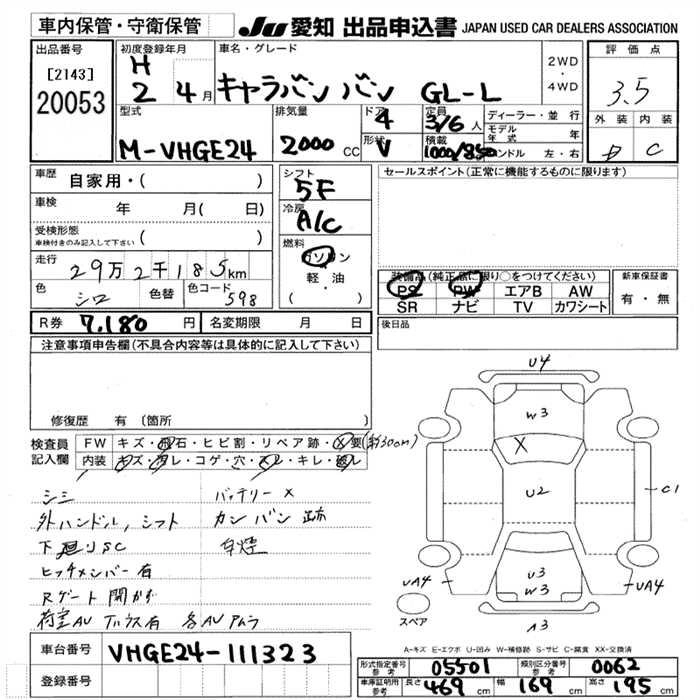 車内保管・守衛保管
JU 愛知 出品申込書 JAPAN USED CAR DEALERS ASSOCIATION
出品番号
[2143]
20053
初度登録年月
H
2 4月
車名・グレード
キャラバン バン GL-L
2WD
・
4WD
評価点
3.5
外装 内装
D C
型式
M-VHGE24
排気量
2000 CC
ドア
4
形状
V
定員
3/6 人
積載
1000/850
ディーラー・並行
モデル年式 年
ハンドル 左・右
車歴 自家用・( )
車検 年 月( 日)
受検形態
車検付きのみ記入して下さい ( )
走行 29万2千185km
色 シロ 色替 色コード 598
シフト
5F
冷房
A/C
燃料
ガソリン
・
軽・油
( )
セールスポイント(正常に機能するものに限ります)
装備品(純正品に限り○をつけてください)
PS PW エアB AW
SR ナビ TV カワシート
新車保証書
有・無
R券 7,180 円 名変期限 月 日
後日品
注意事項申告欄(不具合内容等は具体的に記入して下さい)
修復歴 有 (箇所
検査員
記入欄
FW キズ・飛石・ヒビ割・リペア跡・X要(約30cm)
内装 キズ・汚レ・コゲ・穴・スレ・キレ・破レ
シミ バッテリーX
外ハンドル,シフト カンバン跡
下廻りSC 白煙
ヒッチメンバー有
Rゲート開かず
U4
W3
X
U2
U3
W3
C1
UA4
UA4
A3
スペア
A-キズ E-エクボ U-凹み W-補修跡 S-サビ C-腐食 XX-交換済
車台番号 VHGE24-111323
登録番号
形式指定番号 参考 05501 類別区分番号 参考 0062
車庫証明用 参考 長さ 469 cm 幅 169 cm 高さ 195 cm